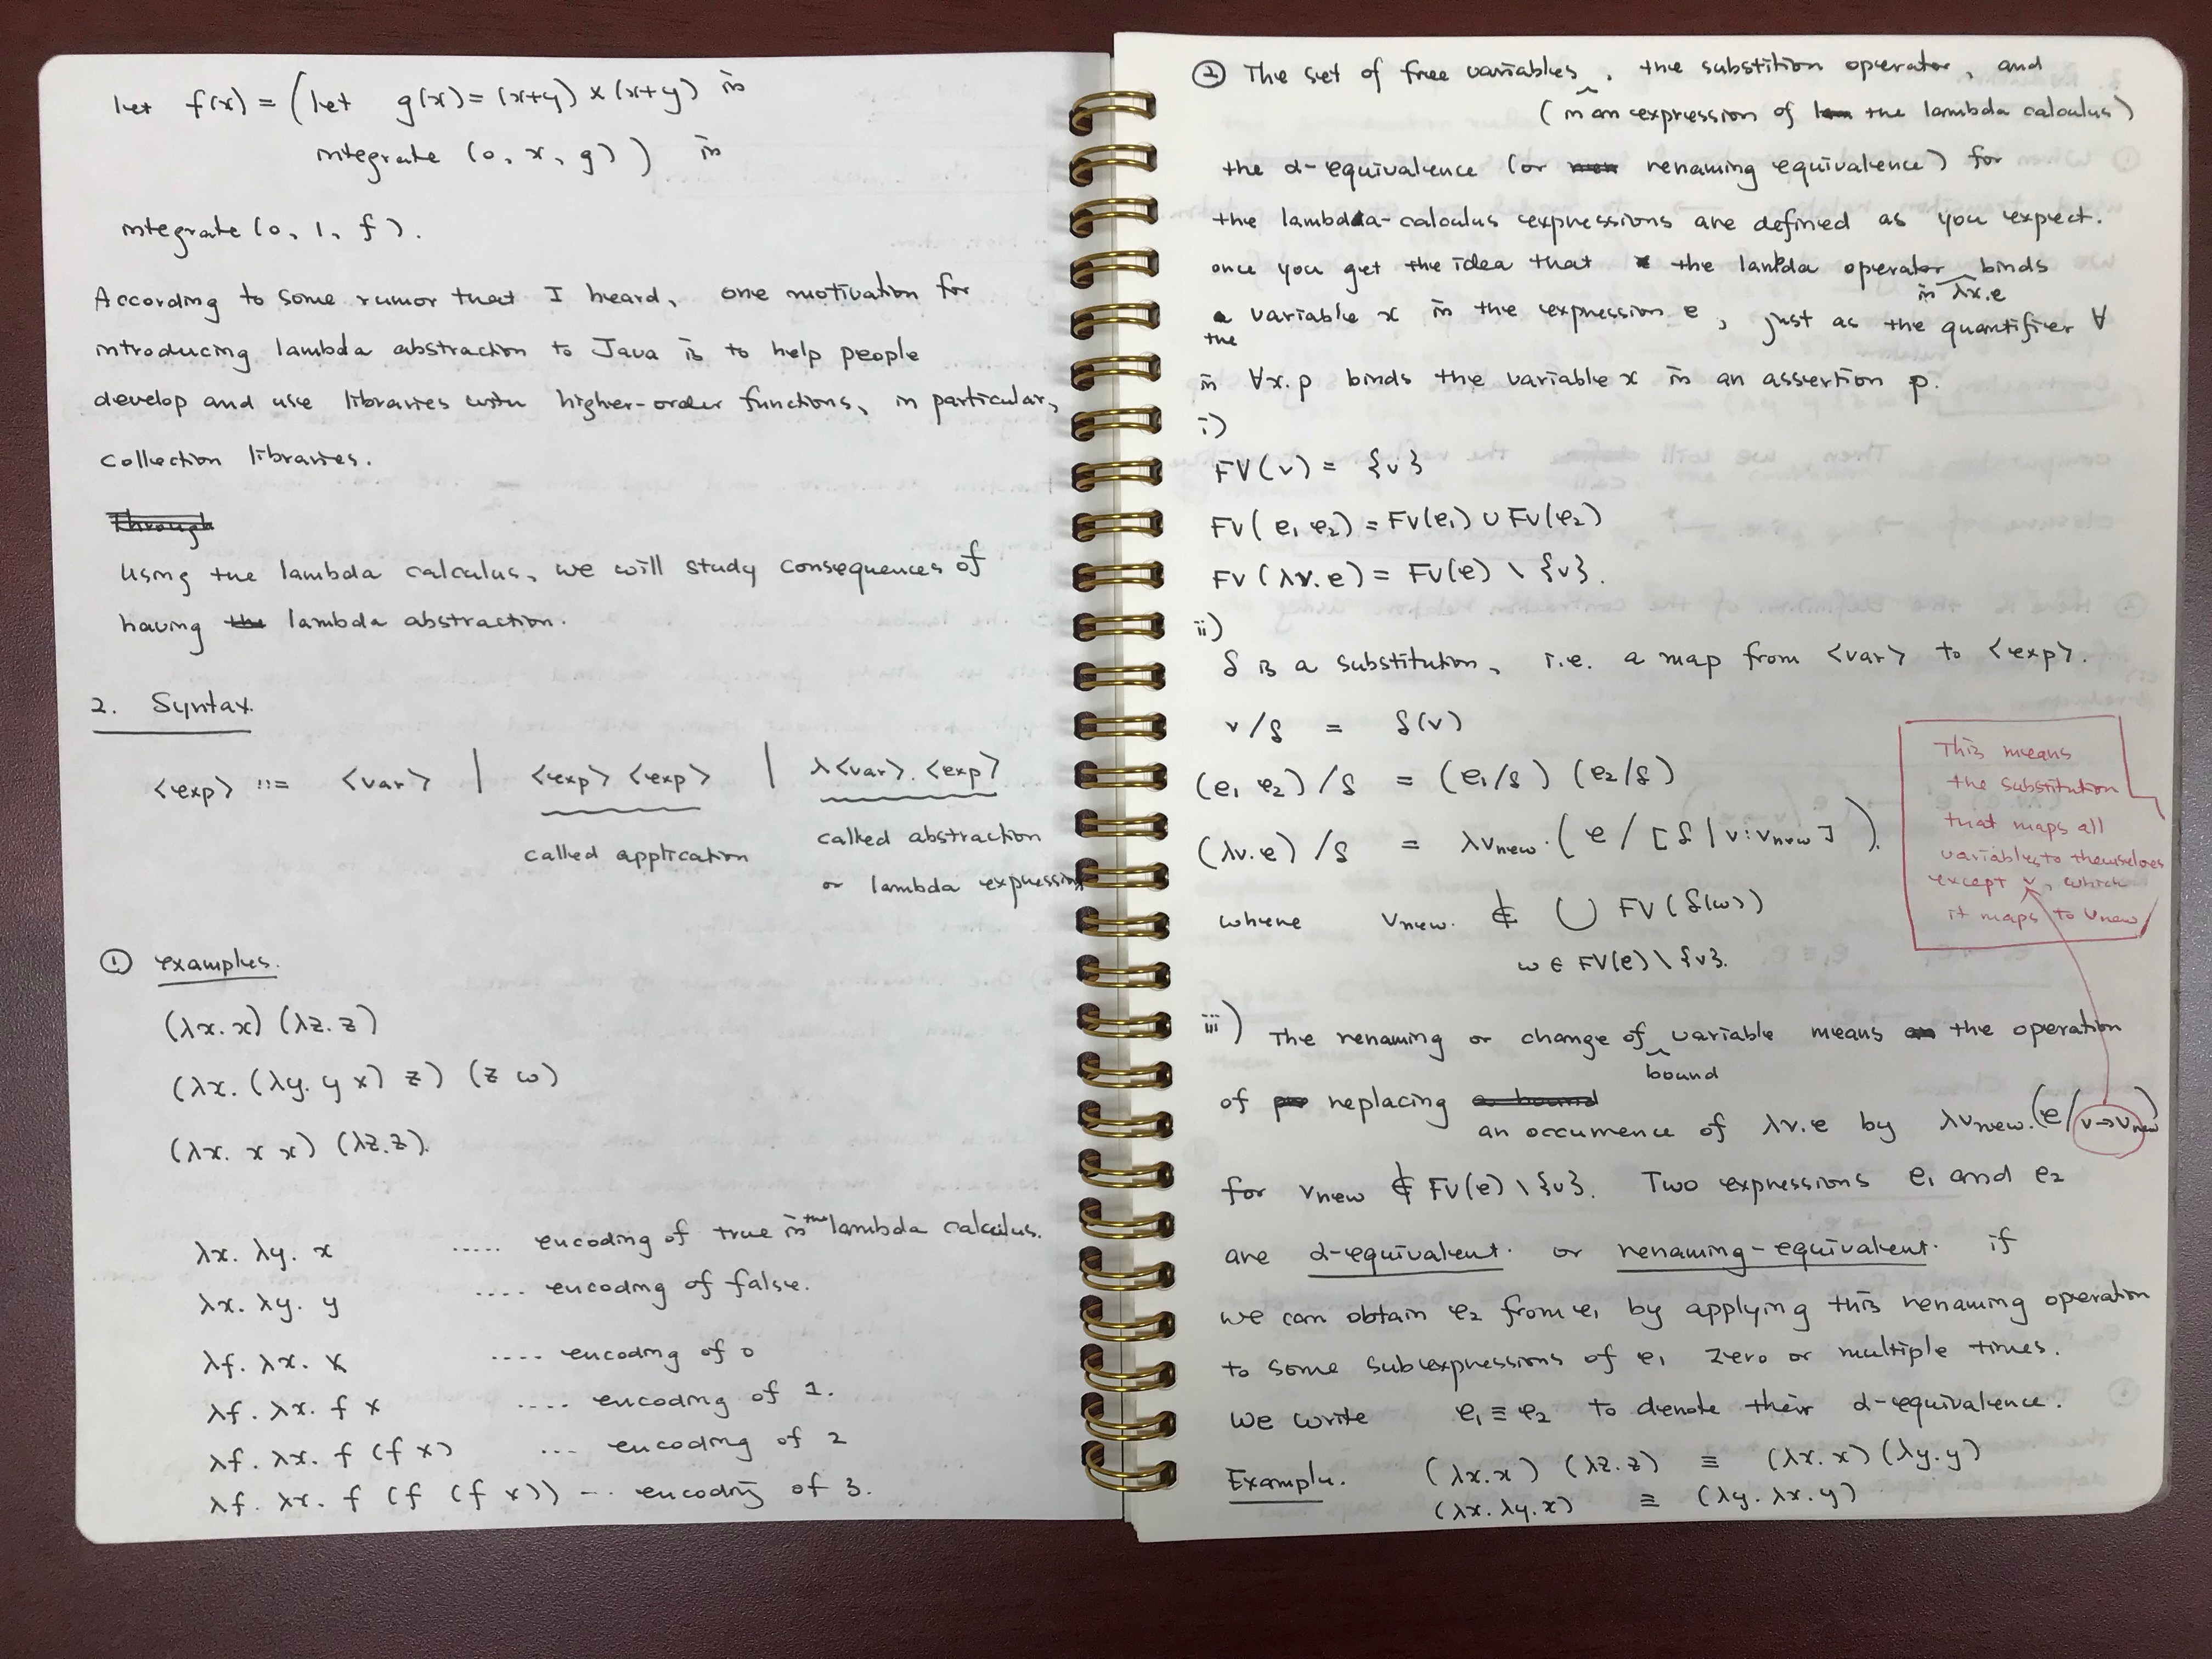 let f(x) = (let g(x) = (x+y) × (x+y) in
integrate (0, x, g)) in
integrate (0, 1, f).
According to some rumor that I heard, one motivation for
introducing lambda abstraction to Java is to help people
develop and use libraries with higher-order functions, in particular,
collection libraries.
Through
Using the lambda calculus, we will study consequences of
having the lambda abstraction.
2. Syntax.
<exp> ::= <var> | <exp> <exp> | λ<var>. <exp>
called application
called abstraction
or lambda expression
① examples.
(λx.x) (λz.z)
(λx. (λy. y x) z) (z w)
(λx. x x) (λz.z).
λx. λy. x ..... encoding of true in the lambda calculus.
λx. λy. y .... encoding of false.
λf. λx. x .... encoding of 0
λf. λx. f x .... encoding of 1.
λf. λx. f (f x) ... encoding of 2
λf. λx. f (f (f x)) ... encoding of 3.
② The set of free variables, the substition operator, and
(in an expression of lam the lambda calculus)
the α-equivalence (or renaming equivalence) for
the lambda-calculus expressions are defined as you expect.
once you get the idea that the lambda operator binds
in λx.e
a variable x in the expression e, just as the quantifier ∀
the
in ∀x.p binds the variable x in an assertion p.
i)
FV(v) = {v}
FV(e₁ e₂) = FV(e₁) ∪ FV(e₂)
FV(λv.e) = FV(e) \ {v}.
ii)
δ is a substitution, i.e. a map from <var> to <exp>.
v/δ = δ(v)
(e₁ e₂)/δ = (e₁/δ) (e₂/δ)
(λv.e)/δ = λvnew.(e/[δ|v:vnew]).
where vnew. ∉ ∪ FV(δ(w))
w ∈ FV(e) \ {v}.
This means
the substitution
that maps all
variables to themselves
except v, which
it maps to vnew
iii) The renaming or change of variable means an the operation
bound
of replacing a bound
an occurrence of λv.e by λvnew.(e/v→vnew)
for vnew ∉ FV(e) \ {v}. Two expressions e₁ and e₂
are α-equivalent. or renaming-equivalent. if
we can obtain e₂ from e₁ by applying this renaming operation
to some subexpressions of e₁ zero or multiple times.
We write e₁ ≡ e₂ to denote their α-equivalence.
Example. (λx.x) (λz.z) ≡ (λx.x) (λy.y)
(λx.λy.x) ≡ (λy.λx.y)